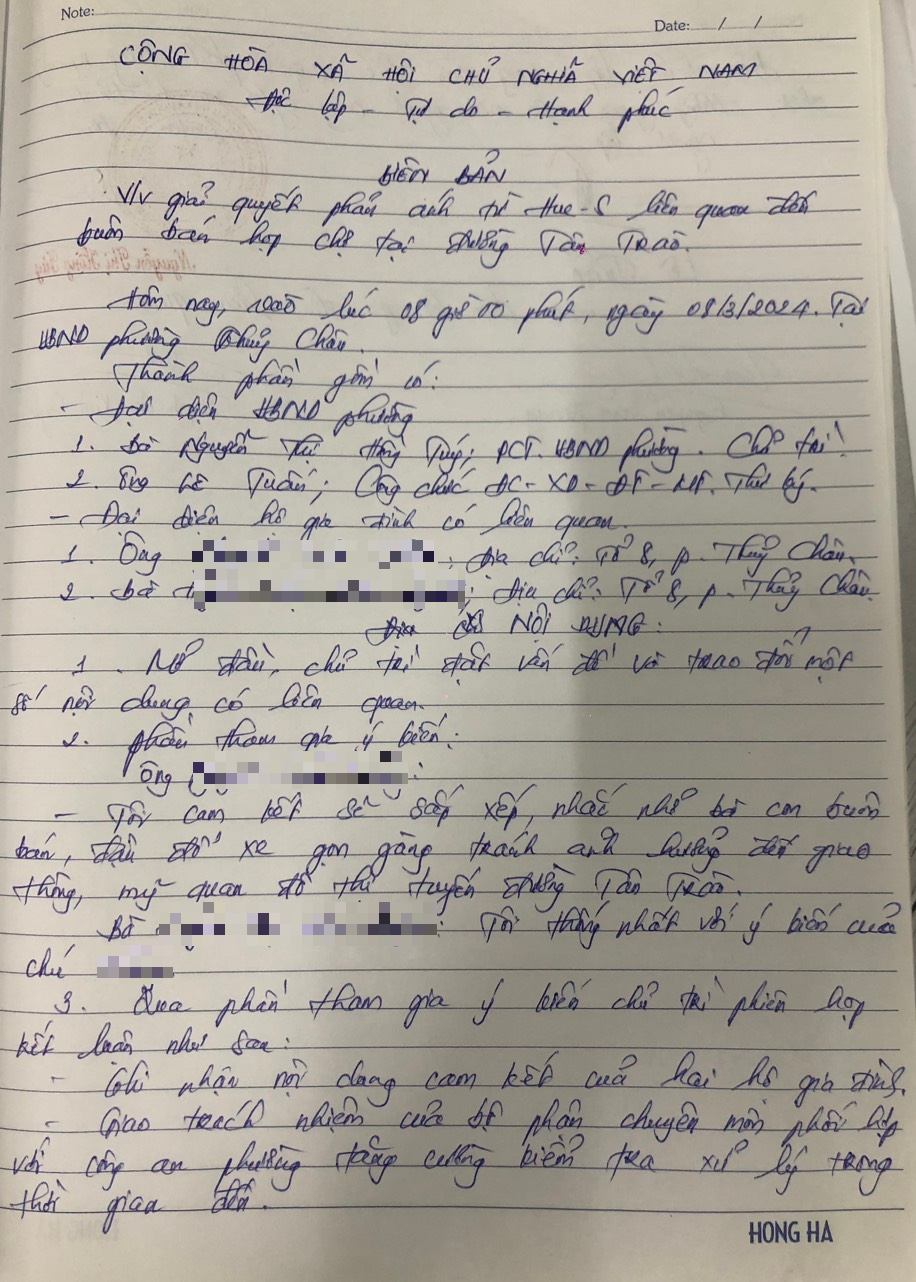 Note:
Date: / /
CỘNG HÒA XÃ HỘI CHỦ NGHĨA VIỆT NAM
Độc lập - Tự do - Hạnh phúc
BIÊN BẢN
V/v giải quyết phản ánh từ Hue-S liên quan đến
buôn bán họp chợ tại đường Tân Trào.
Nguyễn Thị Hồng Túy
Hôm nay, vào lúc 08 giờ 00 phút, ngày 08/3/2024. Tại
UBND phường Thủy Châu.
Thành phần gồm có:
- Đại diện UBND phường
1. Bà Nguyễn Thị Hồng Túy; PCT. UBND phường. Chủ trì.
2. Ông Lê Tuấn; Công chức ĐC-XD-ĐT-MT. Thư ký.
- Đại diện hộ gia đình có liên quan.
1. Ông ; Địa chỉ: Tổ 8, p. Thủy Châu.
2. Bà ; Địa chỉ: Tổ 8, p. Thủy Châu.
NỘI DUNG:
1. Mở đầu, chủ trì đặt vấn đề và trao đổi một
số nội dung có liên quan.
2. Phần tham gia ý kiến:
Ông :
- Tôi cam kết sẽ sắp xếp, nhắc nhở bà con buôn
bán, đậu đỗ xe gọn gàng tránh ảnh hưởng đến giao
thông, mỹ quan đô thị tuyến đường Tân Trào.
Bà : Tôi thống nhất với ý kiến của
chú
3. Qua phần tham gia ý kiến chủ trì phiên họp
kết luận như sau:
- Ghi nhận nội dung cam kết của hai hộ gia đình.
- Giao trách nhiệm của bộ phận chuyên môn phối hợp
với công an phường tăng cường kiểm tra xử lý trong
thời gian đến.
HONG HA